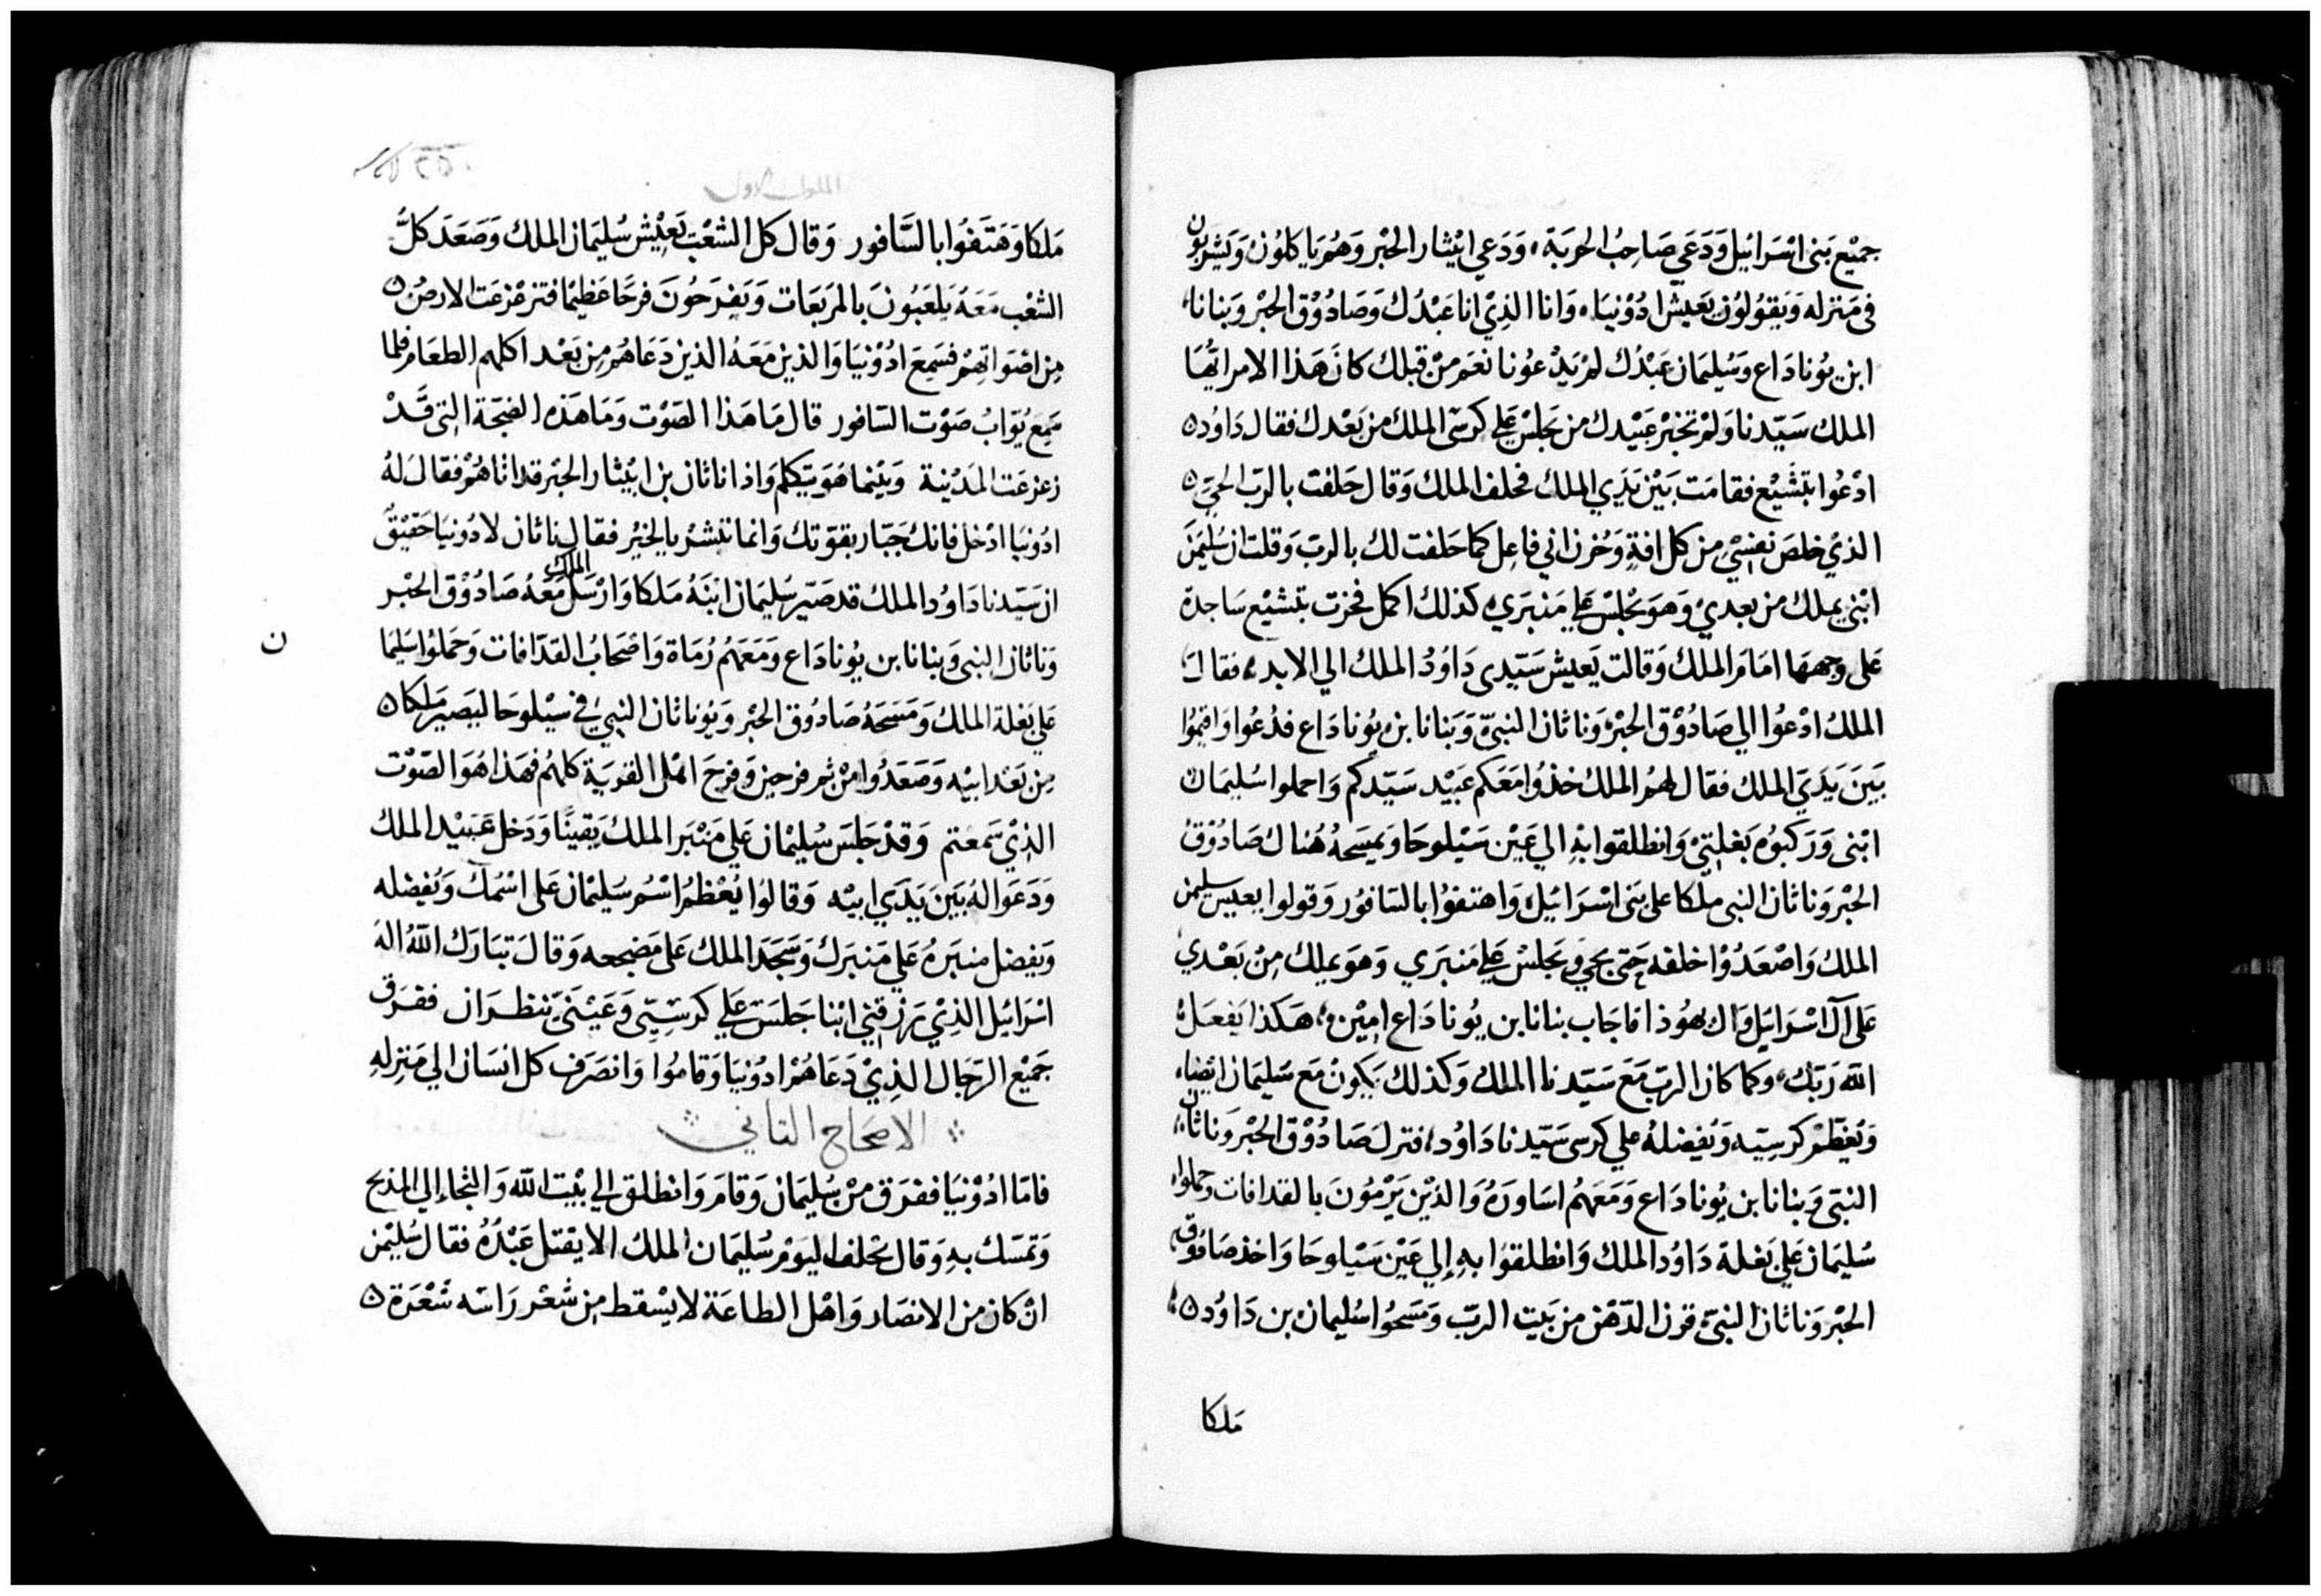 جميْع بَنى اسْرَائيل وَدَعَي صَاحِبُ الحربَة، وَدَعي ابيْثار الحبْر وَهُم يَاكلوُن وَيَشربوُن
فى مَنزله وَيقوُلوُن يَعيشُ ادوْنيَا، وَانا الذِيْ انا عَبْدُك وَصَادُوْق الحبْر وَبنانا،
ابن يوُنادَاع وَسُليمَان عَبْدُك لمْ يَدْعُونا نعَم مِنْ قبلك كانَ هَذا الامر ايُّهَا
الملك سَيّدنا وَلمْ تخبْر عَبيْدك من يَجلسْ عَلي كرسىّ الملك من بَعْدك فقال دَاوُد
ادْعُوا بتشَبْع فقامَت بَيْن يَدَي الملك فحلف الملك وَقال حَلفت بالربّ الحيّ
الذيْ خلصَ نفسْي مِن كل افةٍ وَحُزن اني فاعِل كما حَلفت لك بالربّ وَقلت ان سُليمَن
ابْني يملك من بعديْ وَهوَ يَجْلسْ عَلي مَنبَري كذلك اكمل فخرت بتشَبْع سَاجدة
عَلى وجههَا امَامَ الملك وَقالت يَعيش سَيّدى دَاوُدُ الملك الي الابد، فقالَ
الملكُ ادْعُوا الي صَادُوْق الحبْر وَناثان النبىّ وَبَنانا بن يوُنادَاع فدُعُوا وَاقيموُا
بَيَن يَدَيَ الملك فقال لهُم الملك خذوُا مَعَكم عَبيْد سَيّدكم وَاحملوا سُليمَان
ابْنى وَرَكبوُه بَغلتِيْ وَانطلقوا بهِ الي عَيْن سَيْلوحَا وَيمسَحهُ هُناك صَادُوْقُ
الحبْر وَناثان النبى ملكا على بَنى اسْرَائيل، وَاهتفوُا بالسَافوُر وَقولوا يعيش سليمن
الملك وَاصْعَدُوْا خلفه حَتى يجي وَيَجلسْ عَلي مَنبَري وَهوَ يملك مِنْ بَعْدي
عَلى آل اسْرَايَيل وَال يهُوذا فاجَاب بنانا بن يوُنادَاع امِيْن، هَكذا يَفعَل
الله رَبّك، وَكما كان الربّ مَعَ سَيّدنا الملك وَكذلك يَكونْ مَع سَليمَان ايْضا،
وَيُعَظّمْ كرسِيّه وَيُفضلهُ علي كرسى سَيّدنا دَاوُد، فنزلَ صَادُوْق الحبْر وَناثان
النبّى وَبنانا بن يوُنادَاع وَمَعَهمُ اسَاورَهُ وَالذيْن يَرْموُنَ بالقدافات وحملوا
سُليمَان عَلي بَغلة دَاوُد الملك وَانطلقوَا بهِ إلي عَيْن سَيْلوحَا وَاخذ صَادُوْق
الحبْر وَناثان النبىّ قرن الدّهْن من بَيت الربّ وَمَسَحُوا سُليمان بن دَاوُد
مَلكا
الملوك الاول
مَلكا وَهَتَفوُا بالسَّافور وَقال كل الشعْب يَعيْش سُليمَان الملك وَصَعَدَ كلُّ
الشعْب مَعَهُ يَلعَبُونَ بالمرَبعَات وَيَفرَحُونَ فرحًا عَظيْما فتزعْزعَت الارضُ
مِن اصْوَاتِهمْ فسَمِعَ ادُوْنيَا وَالذين مَعَهُ الذين دَعَاهُم مِن بَعْد اكلهم الطعَام فلما
سَمِعَ يوُابُ صَوْت السَافور قال مَا هَذا الصَوْت وَمَا هَذه الضجّة التى قَدْ
زعزعَت المدَيْنة وَبَيْنما هُوَ يَتكلم وَاذا ناثان بن ابيْثار الحبْر قد اتاهُمْ فقالَ لهُ
ادُونيَا ادْخل فانك جَبّار بقوّتك وَانما تبشرُ بالخيْر فقال ناثان لادُونيَا حَقيْقُ
ان سَيّدنا دَاوُد الملك قد صَيّر سُليمَان ابْنهُ مَلكا وَارْسَل الملك مَعَهُ صَادُوْق الحبْر
وَناثان النبى وَبنانا بن يوُنادَاع وَمَعَهمُ رُمَاة وَاصْحَابُ القدّافات وَحَملوُا سَليمَا
ن
عَلي بَغلة الملك وَمَسَحَهُ صَادُوق الحبْر وَيوُناثان النبيُ في سيْلوحَا ليَصيرَ مَلكا
مِن بَعْد ابيْه وَصَعَدُوا مِنْ ثم فرحين وَفرحَ اهْل القريَة كلهُم فهَذا هُوَ الصَوْت
الذيْ سَمعْتم وَقدْ جَلسَ سُليْمان عَلي مَنْبَر الملك يَقينًا وَدَخل عَبيْد الملك
وَدَعَوا لهُ بَينَ يَدَي ابيْه وَقالوُا يُعْظمُ اسْم سُليْمَان عَلى اسْمك وَيُفضله
وَيفضل منبَرهُ عَلي مَنبَرك وَسَجَدَ الملك عَلى مَضجعه وَقالَ تبَارَك اللهُ الهَ
اسْرَائيل الذِيْ رَزقنِي ابْنا جَلسَ عَلي كرسِيّي وَعَيْنَيّ تنظرَان ففرَق
جَميْع الرجَال الذِيْ دَعَاهُمْ ادُوْنيَا وَقامُوا وَانصَرَف كل انسَان الي مَنزلهِ
الاصحاح الثاني
فامّا ادُوْنيَا ففرَق مِنْ سُليمَان وَقامَ وَانطلق الي بيْت الله وَالتجاء إلي المذبح
وَتمسّك بهِ وَقال تحلف اليوَمْ سُليمَان الملك الا يقْتل عَبْدُهُ فقال سُليْمن
انْ كان من الانصَار وَاهْل الطاعَة لا يسْقط مِن شعْر رَاسَه شَعْرَة